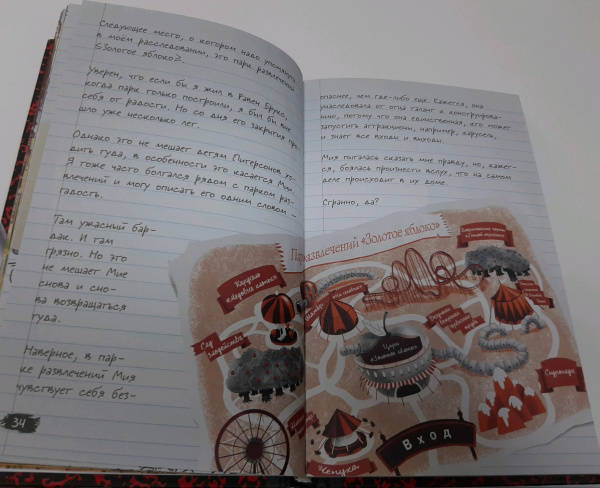 Следующее место, о котором надо упомянуть
в моём расследовании, это парк развлечений
«Золотое яблоко».
Уверен, что если бы я жил в Равен Брукс,
когда парк только построили, я был бы вне
себя от радости. Но со дня его закрытия про-
шло уже несколько лет.
Однако это не мешает детям Питерсонов хо-
дить туда, в особенности это касается Мии.
Я тоже часто болтался рядом с парком раз-
влечений и могу описать его одним словом –
гадость.
Там ужасный бар-
дак. И там
грязно. Но это
не мешает Мие
снова и сно-
ва возвращаться
туда.
Наверное, в пар-
ке развлечений Мия
чувствует себя без-
34
опаснее, чем где-либо ещё. Кажется, она
унаследовала от отца талант к конструирова-
нию, потому что она единственная, кто может
запустить аттракционы, например, карусель,
и знает все входы и выходы.
Мия пыталась сказать мне правду, но, кажет-
ся, боялась произнести вслух, что на самом
деле происходит в их доме.
Странно, да?
Парк развлечений «Золотое яблоко»
Карусель
Сад
Цирк
«Золотое яблоко»
Вход